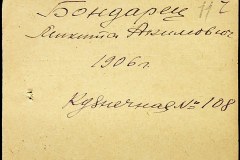 Бондарец
Никита Акимович
1906 г.
Кузнечная № 108